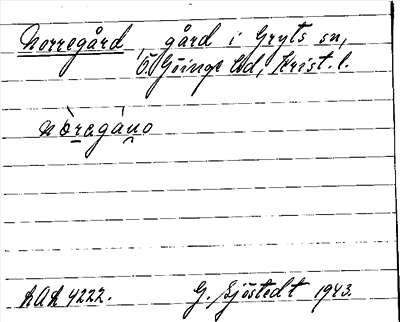 Norregård, gård i Gryts sn,
Ö. Göinge hd, Krist. l.
nòregáno
LAL 4222. G. Sjöstedt 1943.